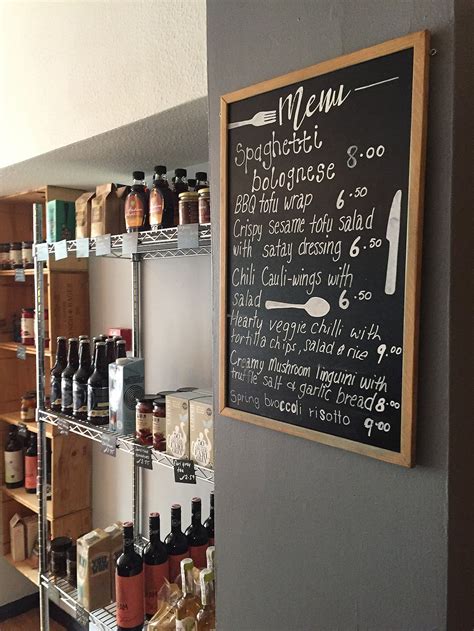 Menu
Spaghetti
bolognese 8.00
BBQ tofu wrap 6.50
Crispy sesame tofu salad
with satay dressing 6.50
Chili Cauli-wings with
salad 6.50
Hearty veggie chilli with
tortilla chips, salad & rice 9.00
Creamy Mushroom linguini with
truffle salt & garlic bread 8.00
Spring broccoli risotto 9.00